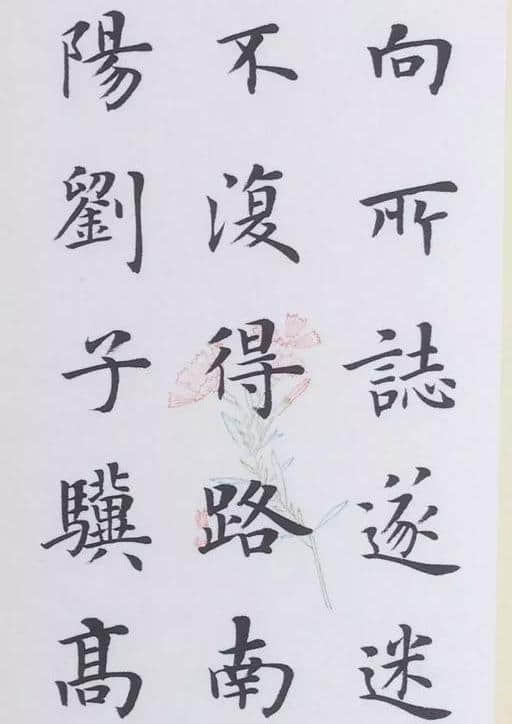 向所誌遂迷
不復得路南
陽劉子驥髙